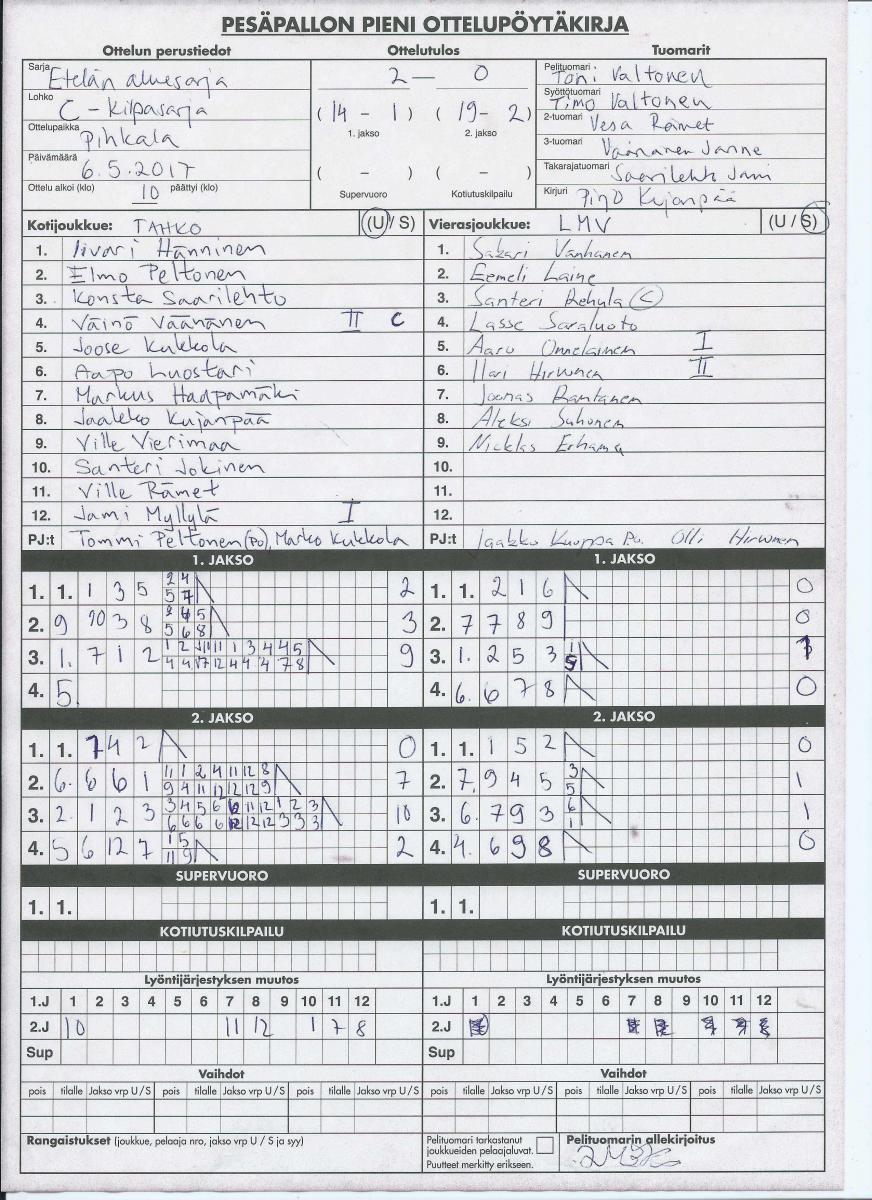 PESÄPALLON PIENI OTTELUPÖYTÄKIRJA
Ottelun perustiedot
Sarja Etelän aluesarja
Lohko C-Kilpasarja
Ottelupaikka Pihkala
Päivämäärä 6.5.2017
Ottelu alkoi (klo) 10 päättyi (klo)
Ottelutulos
2 — 0
( 14 - 1 ) ( 19 - 2 )
1. jakso 2. jakso
( - ) ( - )
Supervuoro Kotiutuskilpailu
Tuomarit
Pelituomari Toni Valtonen
Syöttötuomari Timo Valtonen
2-tuomari Vesa Rämet
3-tuomari Väänänen Janne
Takarajatuomari Saarilehto Jani
Kirjuri Kujanpää
Kotijoukkue: TAHKO (U / S)
1. Iivari Hänninen
2. Elmo Peltonen
3. Konsta Saarilehto
4. Väinö Väänänen II C
5. Joose Kukkola
6. Aapo Luostari
7. Markus Haapamäki
8. Jaakko Kujanpää
9. Ville Vierimaa
10. Santeri Jokinen
11. Ville Rämet
12. Jami Myllylä I
PJ:t Tommi Peltonen (Po), Marko Kukkola
Vierasjoukkue: LMV (U / S)
1. Sakari Vanhanen
2. Eemeli Laine
3. Santeri Rehula C
4. Lasse Saraluoto
5. Aaro Onnelainen I
6. Ilari Hirvonen II
7. Joonas Rantanen
8. Aleksi Suhonen
9. Nicklas
10.
11.
12.
PJ:t Jaakko Kuoppa Po. Olli Hirvonen
1. JAKSO
1. 1. 1 3 5 2 4 2
5 7
2. 9 10 3 8 5 3
5 6 8
3. 1. 7 1 2 9
4. 5.
1. JAKSO
1. 1. 2 1 6 0
2. 7 7 8 9 0
3. 1. 2 5 3 1
4. 6. 6 7 8 0
2. JAKSO
1. 1. 7 4 2 0
2. 6. 6 6 1 11 1 2 4 11 12 8 7
9 4 11 12 12 12 9
3. 2. 1 2 3 3 4 5 6 6 11 12 1 2 3 10
6 6 6 6 12 12 12 3 3 3
4. 5 6 12 7 1 5 2
11 9
2. JAKSO
1. 1. 1 5 2 0
2. 7. 9 4 5 3 1
5
3. 6. 7 9 3 6 1
1
4. 4. 6 9 8 0
SUPERVUORO
1. 1.
SUPERVUORO
1. 1.
KOTIUTUSKILPAILU
KOTIUTUSKILPAILU
Lyöntijärjestyksen muutos
1.J 1 2 3 4 5 6 7 8 9 10 11 12
2.J 10 11 12 1 7 8
Sup
Lyöntijärjestyksen muutos
1.J 1 2 3 4 5 6 7 8 9 10 11 12
2.J
Sup
Vaihdot
pois tilalle Jakso vrp U / S pois tilalle Jakso vrp U / S pois tilalle Jakso vrp U / S
Vaihdot
pois tilalle Jakso vrp U / S pois tilalle Jakso vrp U / S pois tilalle Jakso vrp U / S
Rangaistukset (joukkue, pelaaja nro, jakso vrp U / S ja syy)
Pelituomari tarkastanut
joukkueiden pelaajaluvat.
Puutteet merkitty erikseen.
Pelituomarin allekirjoitus